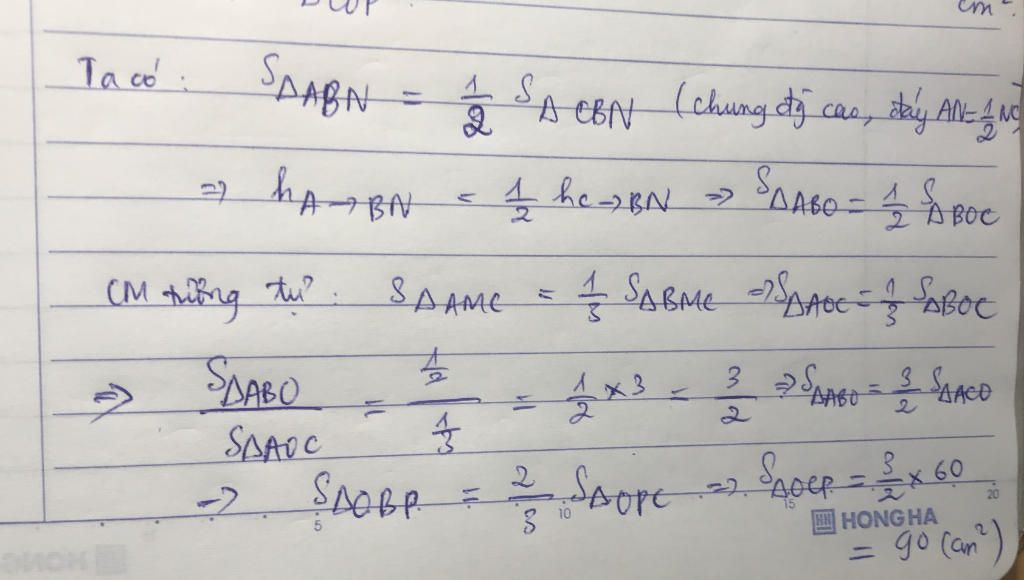 cm².
Ta có: S△ABN = 1/2 S△CBN (chung đg cao, đáy AN=1/2 NC)
=> hA→BN = 1/2 hC→BN => S△ABO = 1/2 S△BOC
CM tương tự: S△AMC = 1/3 S△BMC => S△AOC = 1/3 S△BOC
=> S△ABO / S△AOC = (1/2) / (1/3) = 1/2 × 3 = 3/2 => S△ABO = 3/2 S△ACO
=> S△OBP = 2/3 S△OPC => S△OCP = 3/2 × 60
5 10 15 20
HONG HA
= 90 (cm²)